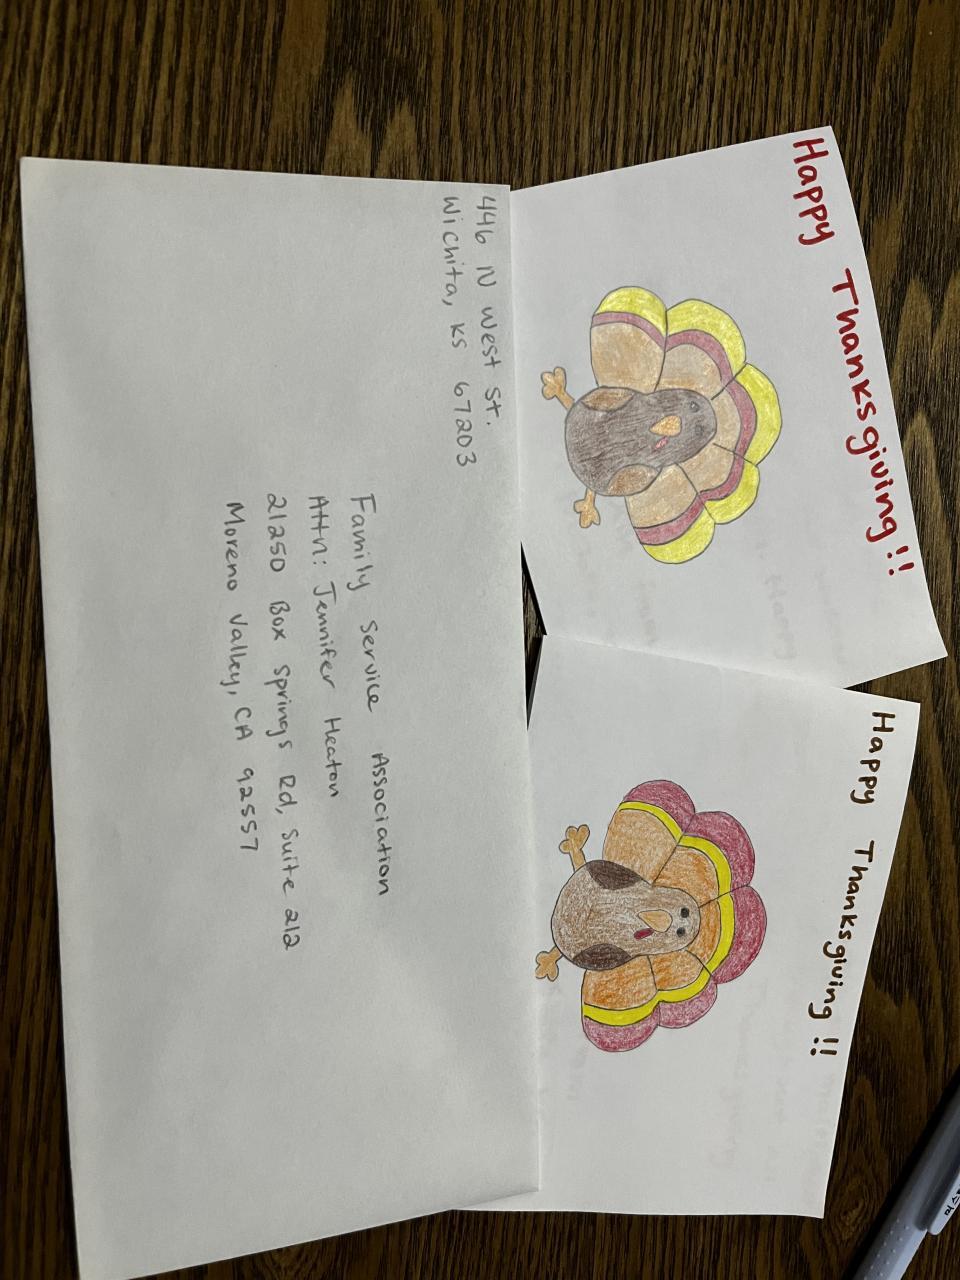 Happy Thanksgiving!!
Happy Thanksgiving!!
446 N West St.
Wichita, KS 67203
Family Service Association
Attn: Jennifer Heaton
21250 Box Springs Rd, Suite 212
Moreno Valley, CA 92557